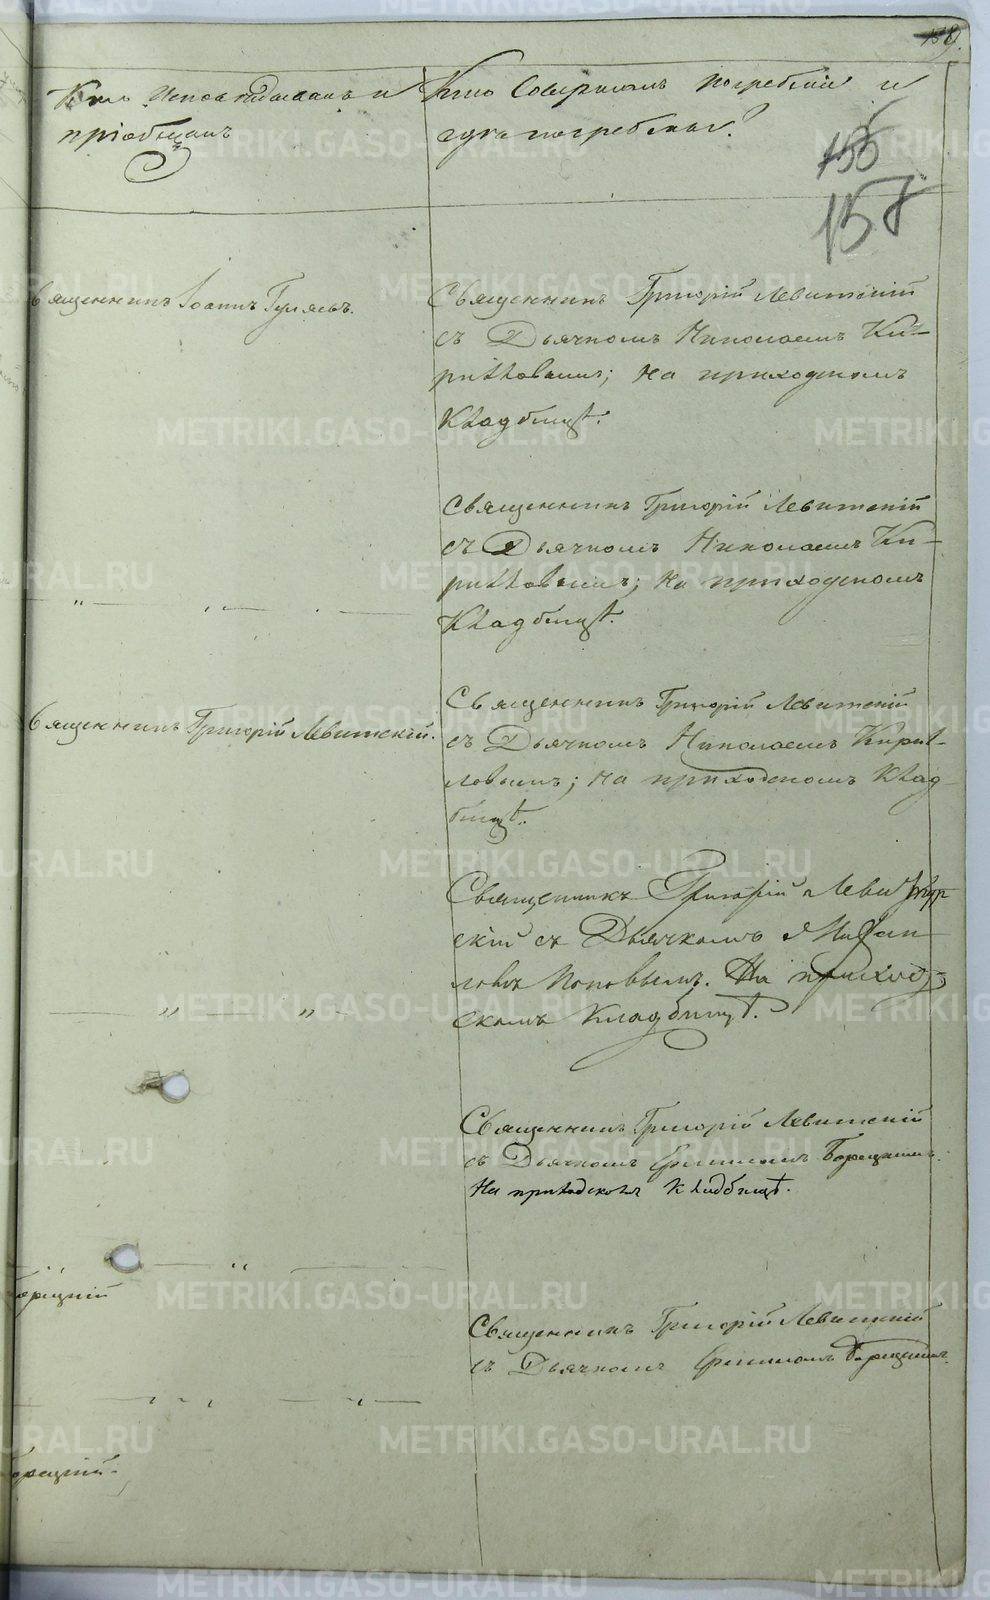 159.
Кто Исповѣдывалъ и
пріобщалъ
Кто Совершалъ погребеніе и
гдѣ погребены?
155
157
Священникъ Іоаннъ Гуляевъ.
Священникъ Григорій Левитскій
съ Дьячкомъ Николаемъ Ки-
рилловымъ; на приходскомъ
Кладбищѣ.
Священникъ Григорій Левитскій
съ Дьячкомъ Николаемъ Ки-
рилловымъ; на приходскомъ
Кладбищѣ.
Священникъ Григорій Левитскій.
Священникъ Григорій Левитскій
съ Дьячкомъ Николаемъ Кирил-
ловымъ; на приходскомъ Клад-
бищѣ.
Священникъ Григорій Леви
скій съ Дьячкомъ
Поповымъ. На приход-
скомъ Кладбищѣ.
Священникъ Григорій Левитскій
съ Дьячкомъ Борецкимъ.
На приходскомъ Кладбищѣ.
Борецкій
Священникъ Григорій Левитскій
съ Дьячкомъ Борецкимъ.
Борецкій.
METRIKI.GASO-URAL.RU